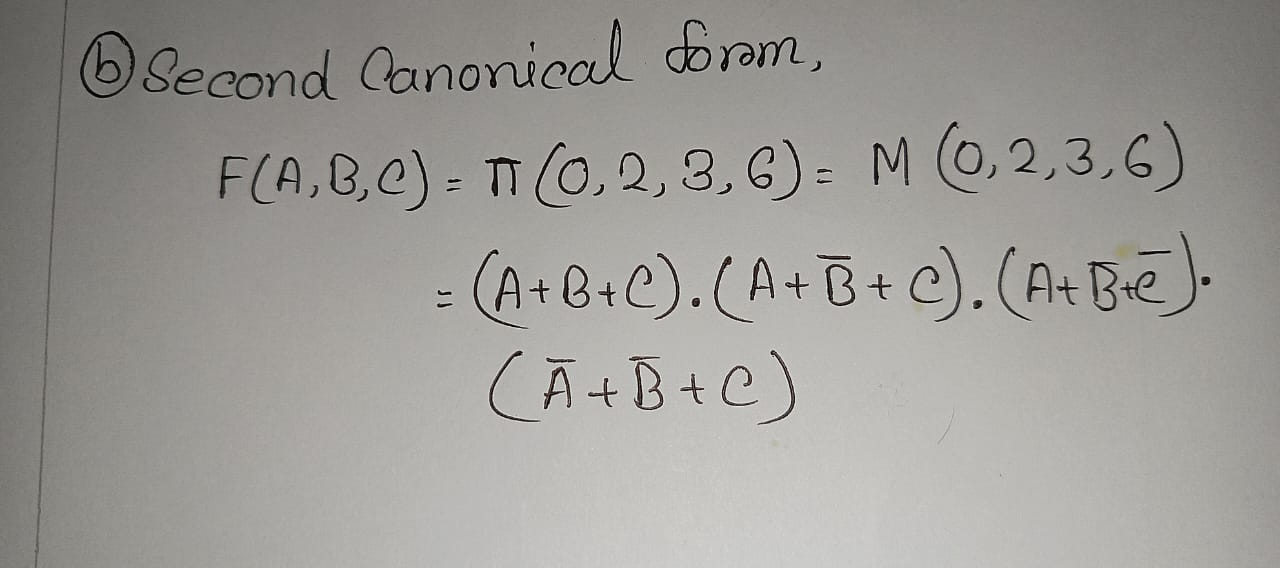 ⓑ Second Canonical form,
F(A,B,C) = π (0, 2, 3, 6) = M (0, 2, 3, 6)
= (A+B+C).(A+B̅+C).(A+B̅+C̅).
(A̅+B̅+C)